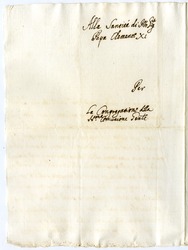 Alla Santità di Nro Sig
Papa Clemente XI
Per
La Congregazione della